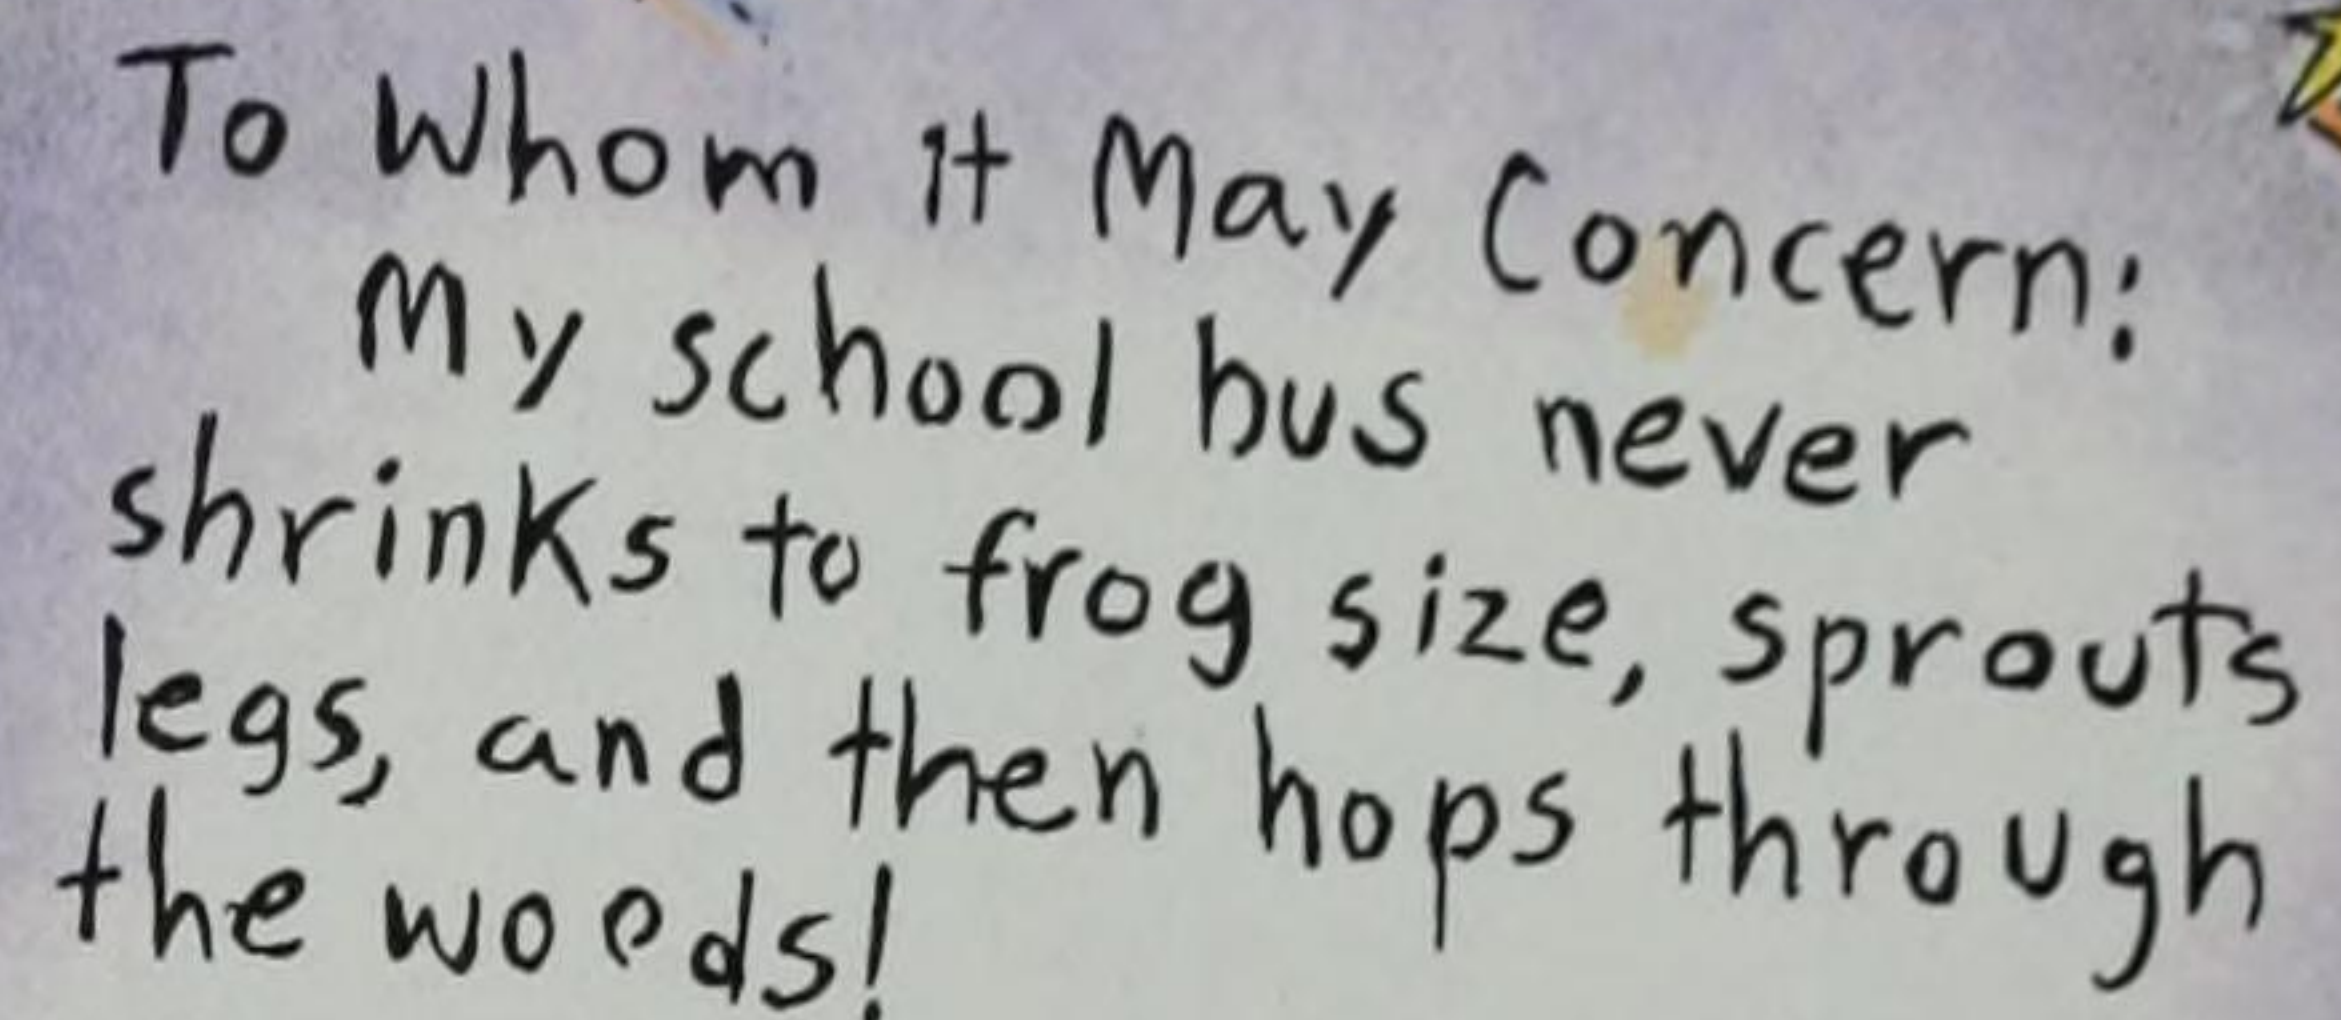 To Whom it May Concern:
My school bus never
shrinks to frog size, sprouts
legs, and then hops through
the woods!